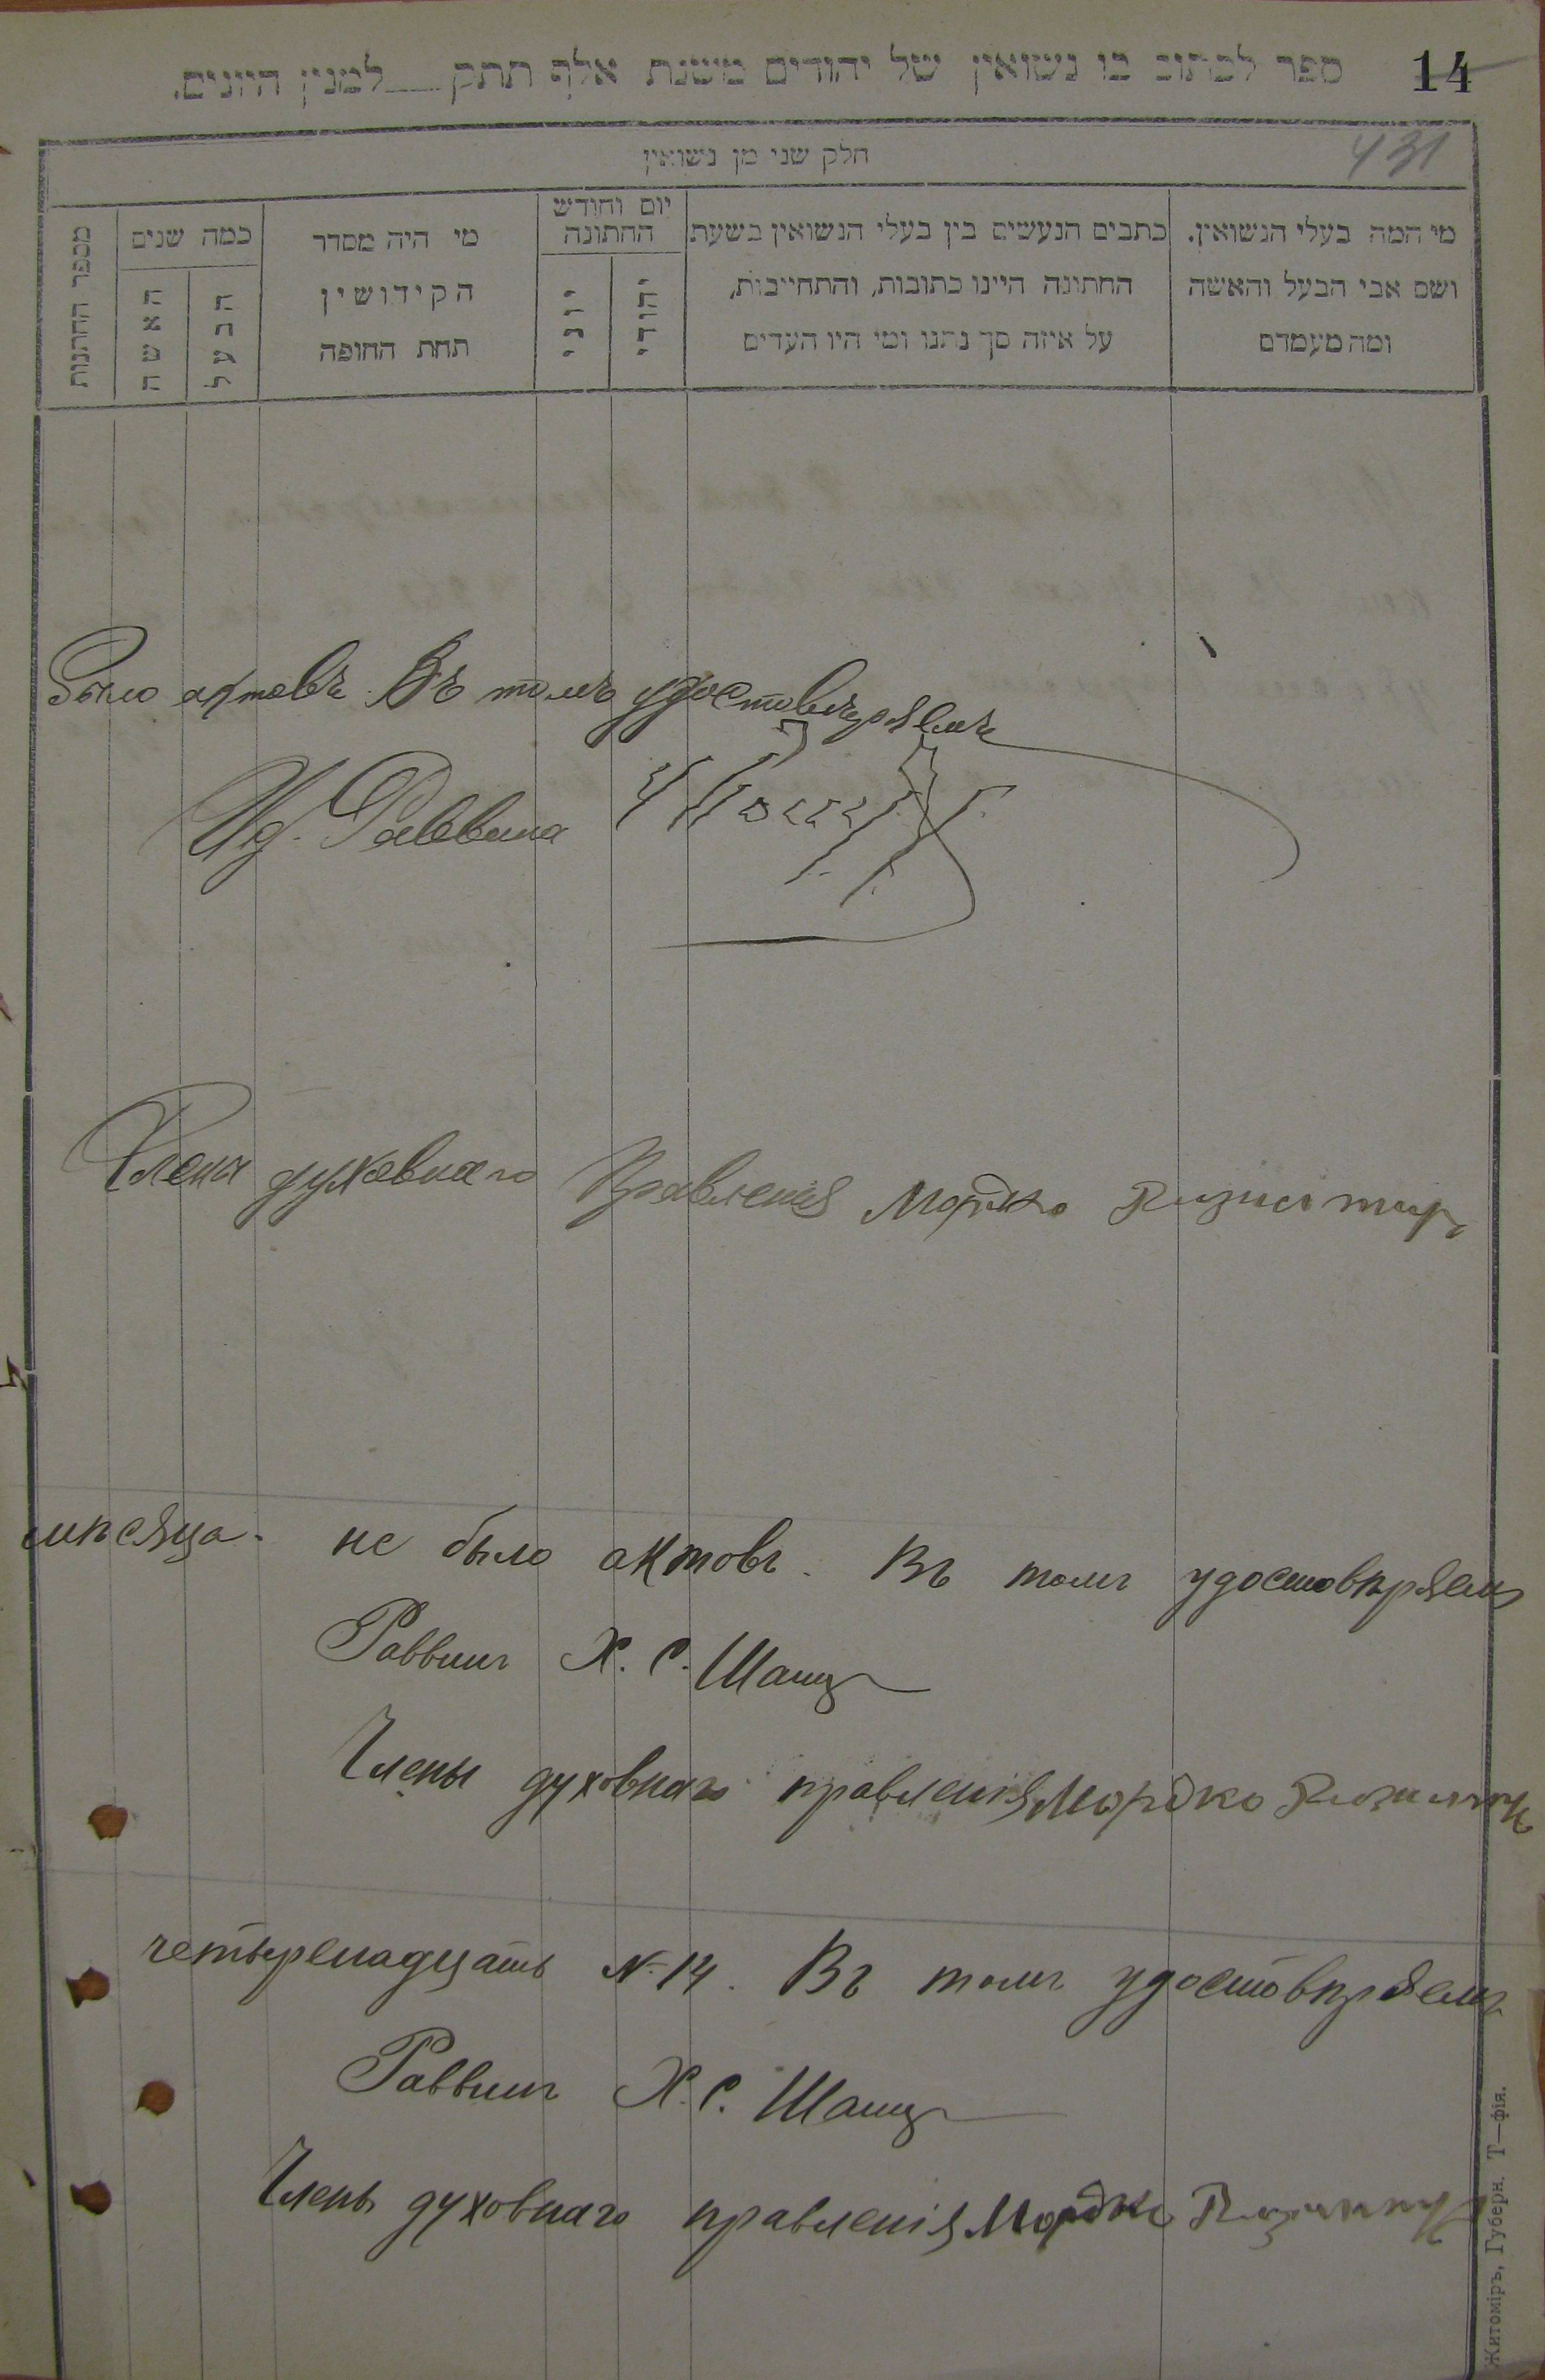 14
ספר לכתוב בו נשואין של יהודים משנת אלף תתק____למנין היונים.
431
חלק שני מן נשואין
מי המה בעלי הנשואין.
ושם אבי הבעל והאשה
ומה מעמדם
כתבים הנעשים בין בעלי הנשואין בשעת
החתונה היינו כתובות, והתחייבות,
על איזה סך נתנו ומי היו העדים
יום וחודש
החתונה
יהודי
יוני
מי היה מסדר
הקידושין
תחת החופה
כמה שנים
הבעל
האשה
מספר החתנות
было актовъ. Въ томъ удостовѣряемъ
Раввина
Члены духовнаго Правленія Мордко
мѣсяца не было актовъ. Въ томъ удостовѣряемъ
Раввинъ Х. С. Шанц
Члены духовнаго правленія Мордко
четырнадцать № 14. Въ томъ удостовѣряемъ
Раввинъ Х. С. Шанц
Члены духовнаго правленія Мордко
Житоміръ, Губерн. Т—фія.